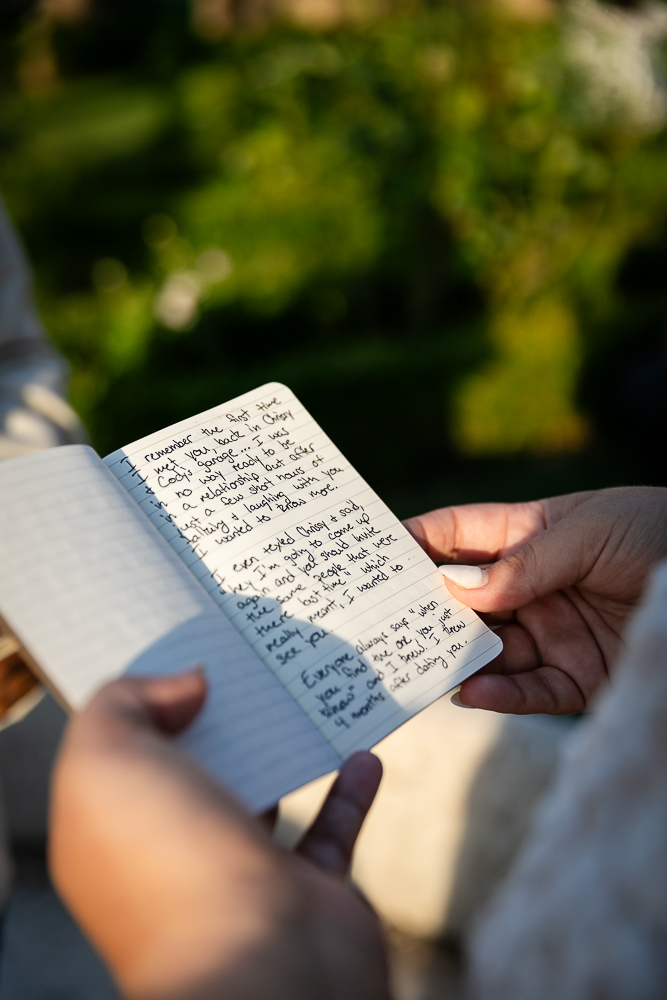 I remember the first time
I met you, back in Chrissy
& Cody's garage... I was
in no way ready to be
in a relationship but after
just a few short hours of
talking & laughing with you
I wanted to know more.
I even texted Chrissy & said,
"hey I'm going to come up
again and you should invite
the same people that were
there last time" which
really meant, I wanted to
see you.
Everyone always says "when
you find the one, you just
know" and I knew. I knew
4 months after dating you.